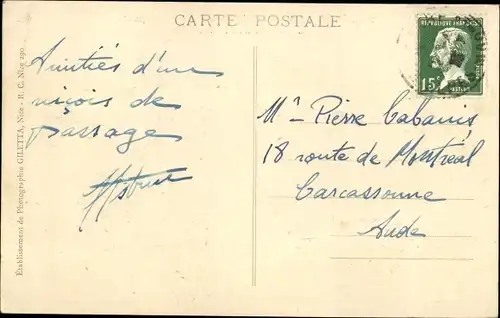 CARTE POSTALE
REPUBLIQUE FRANÇAISE
15c
Amitiés d'un
niçois de
passage
Mr Pierre Cabanis
18 route de Montréal
Carcassonne
Aude
Etablissement de Photographie GILETTA, Nice - R. C. Nice 290